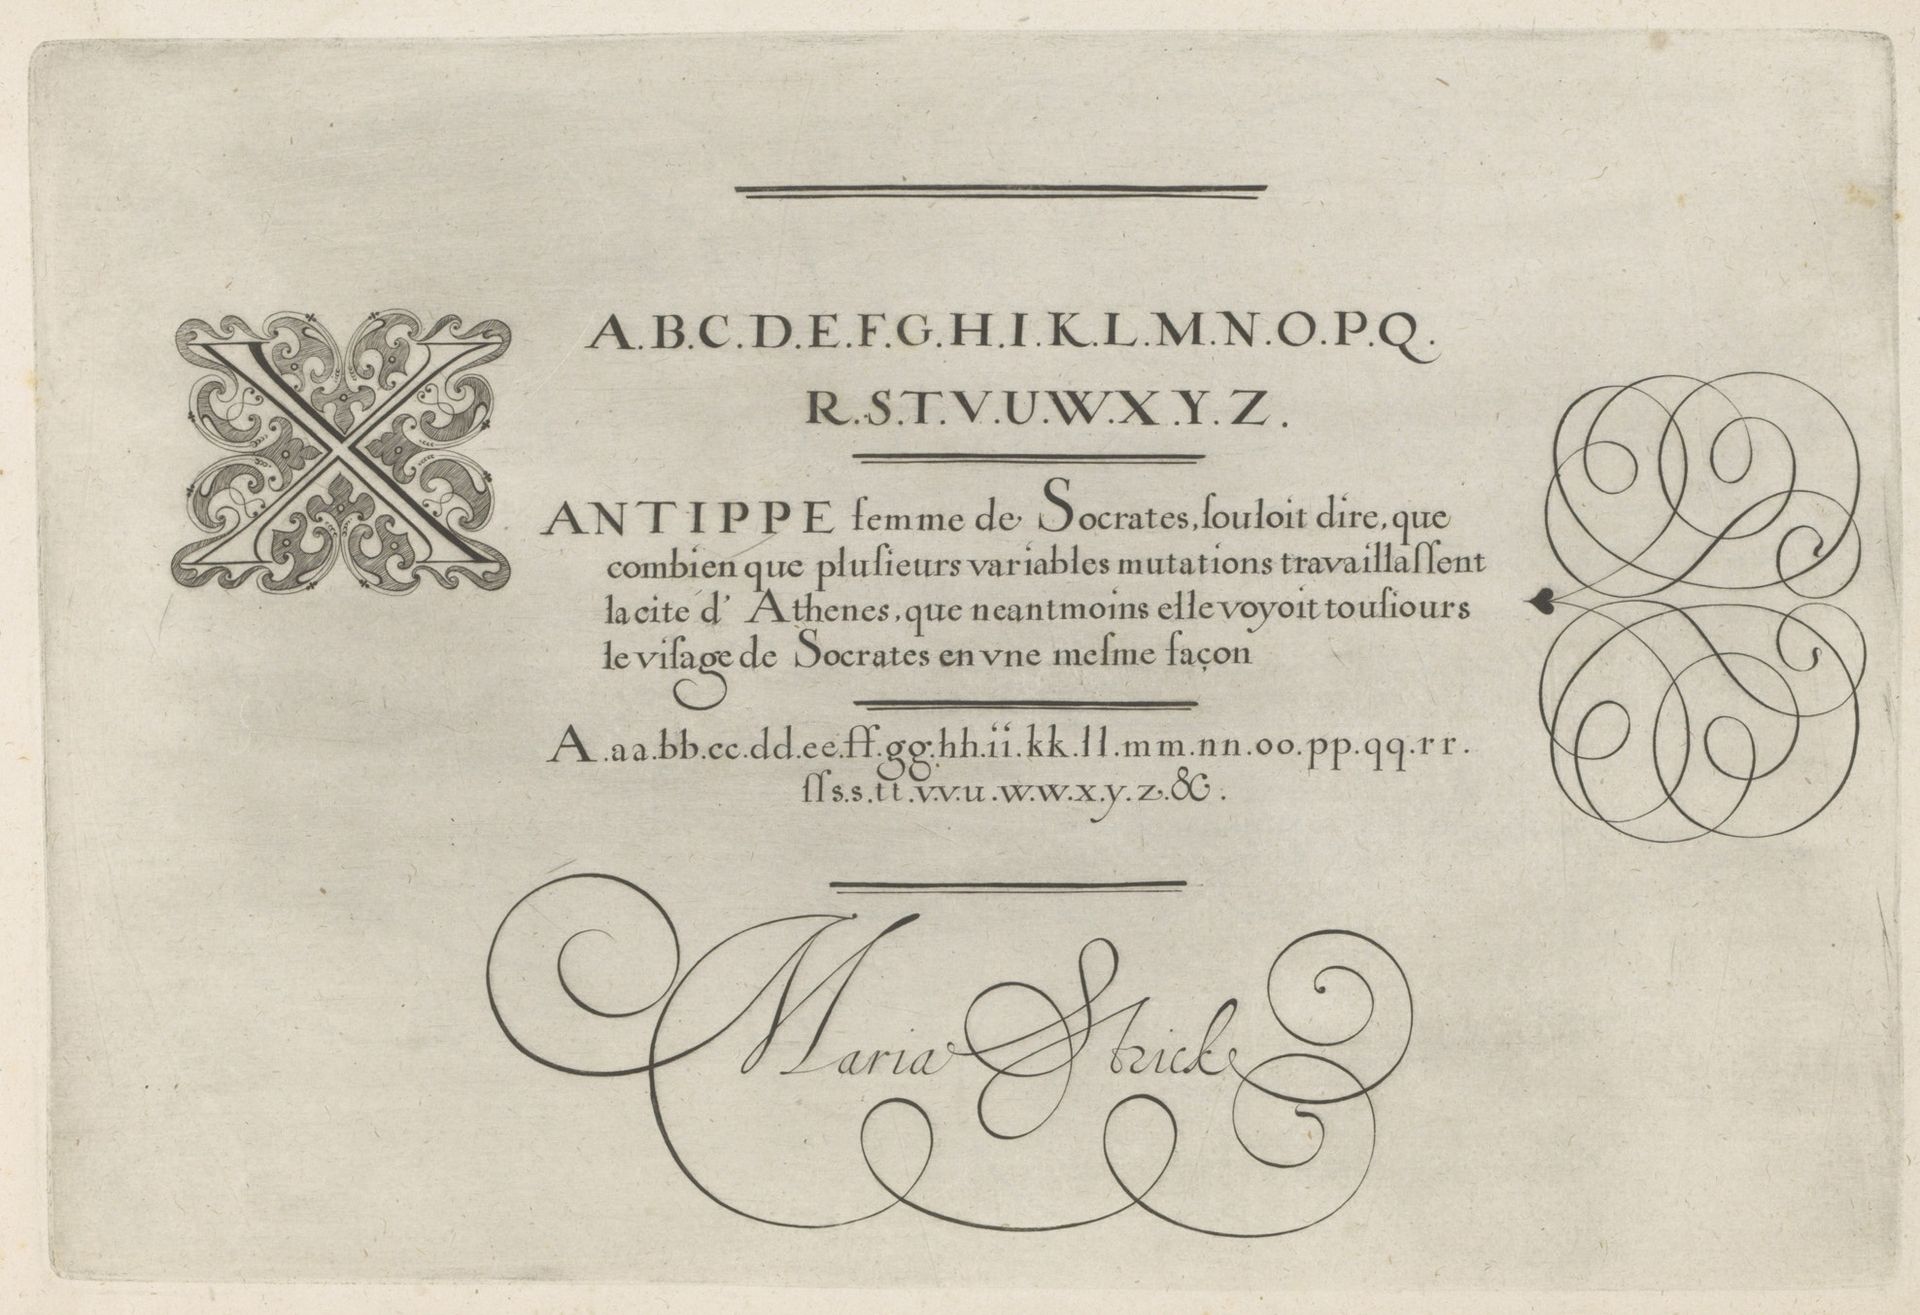 A.B.C.D.E.F.G.H.I.K.L.M.N.O.P.Q.
R.S.T.V.U.W.X.Y.Z.
XANTIPPE femme de Socrates, ſouloit dire, que
combien que pluſieurs variables mutations travaillaſſent
la cite d' Athenes, que neantmoins elle voyoit touſiours
le viſage de Socrates en vne meſme façon
A.aa.bb.cc.dd.ee.ff.gg.hh.ii.kk.ll.mm.nn.oo.pp.qq.rr.
ſſs.s.tt.v.v.u.w.w.x.y.z.&.
Maria Strick